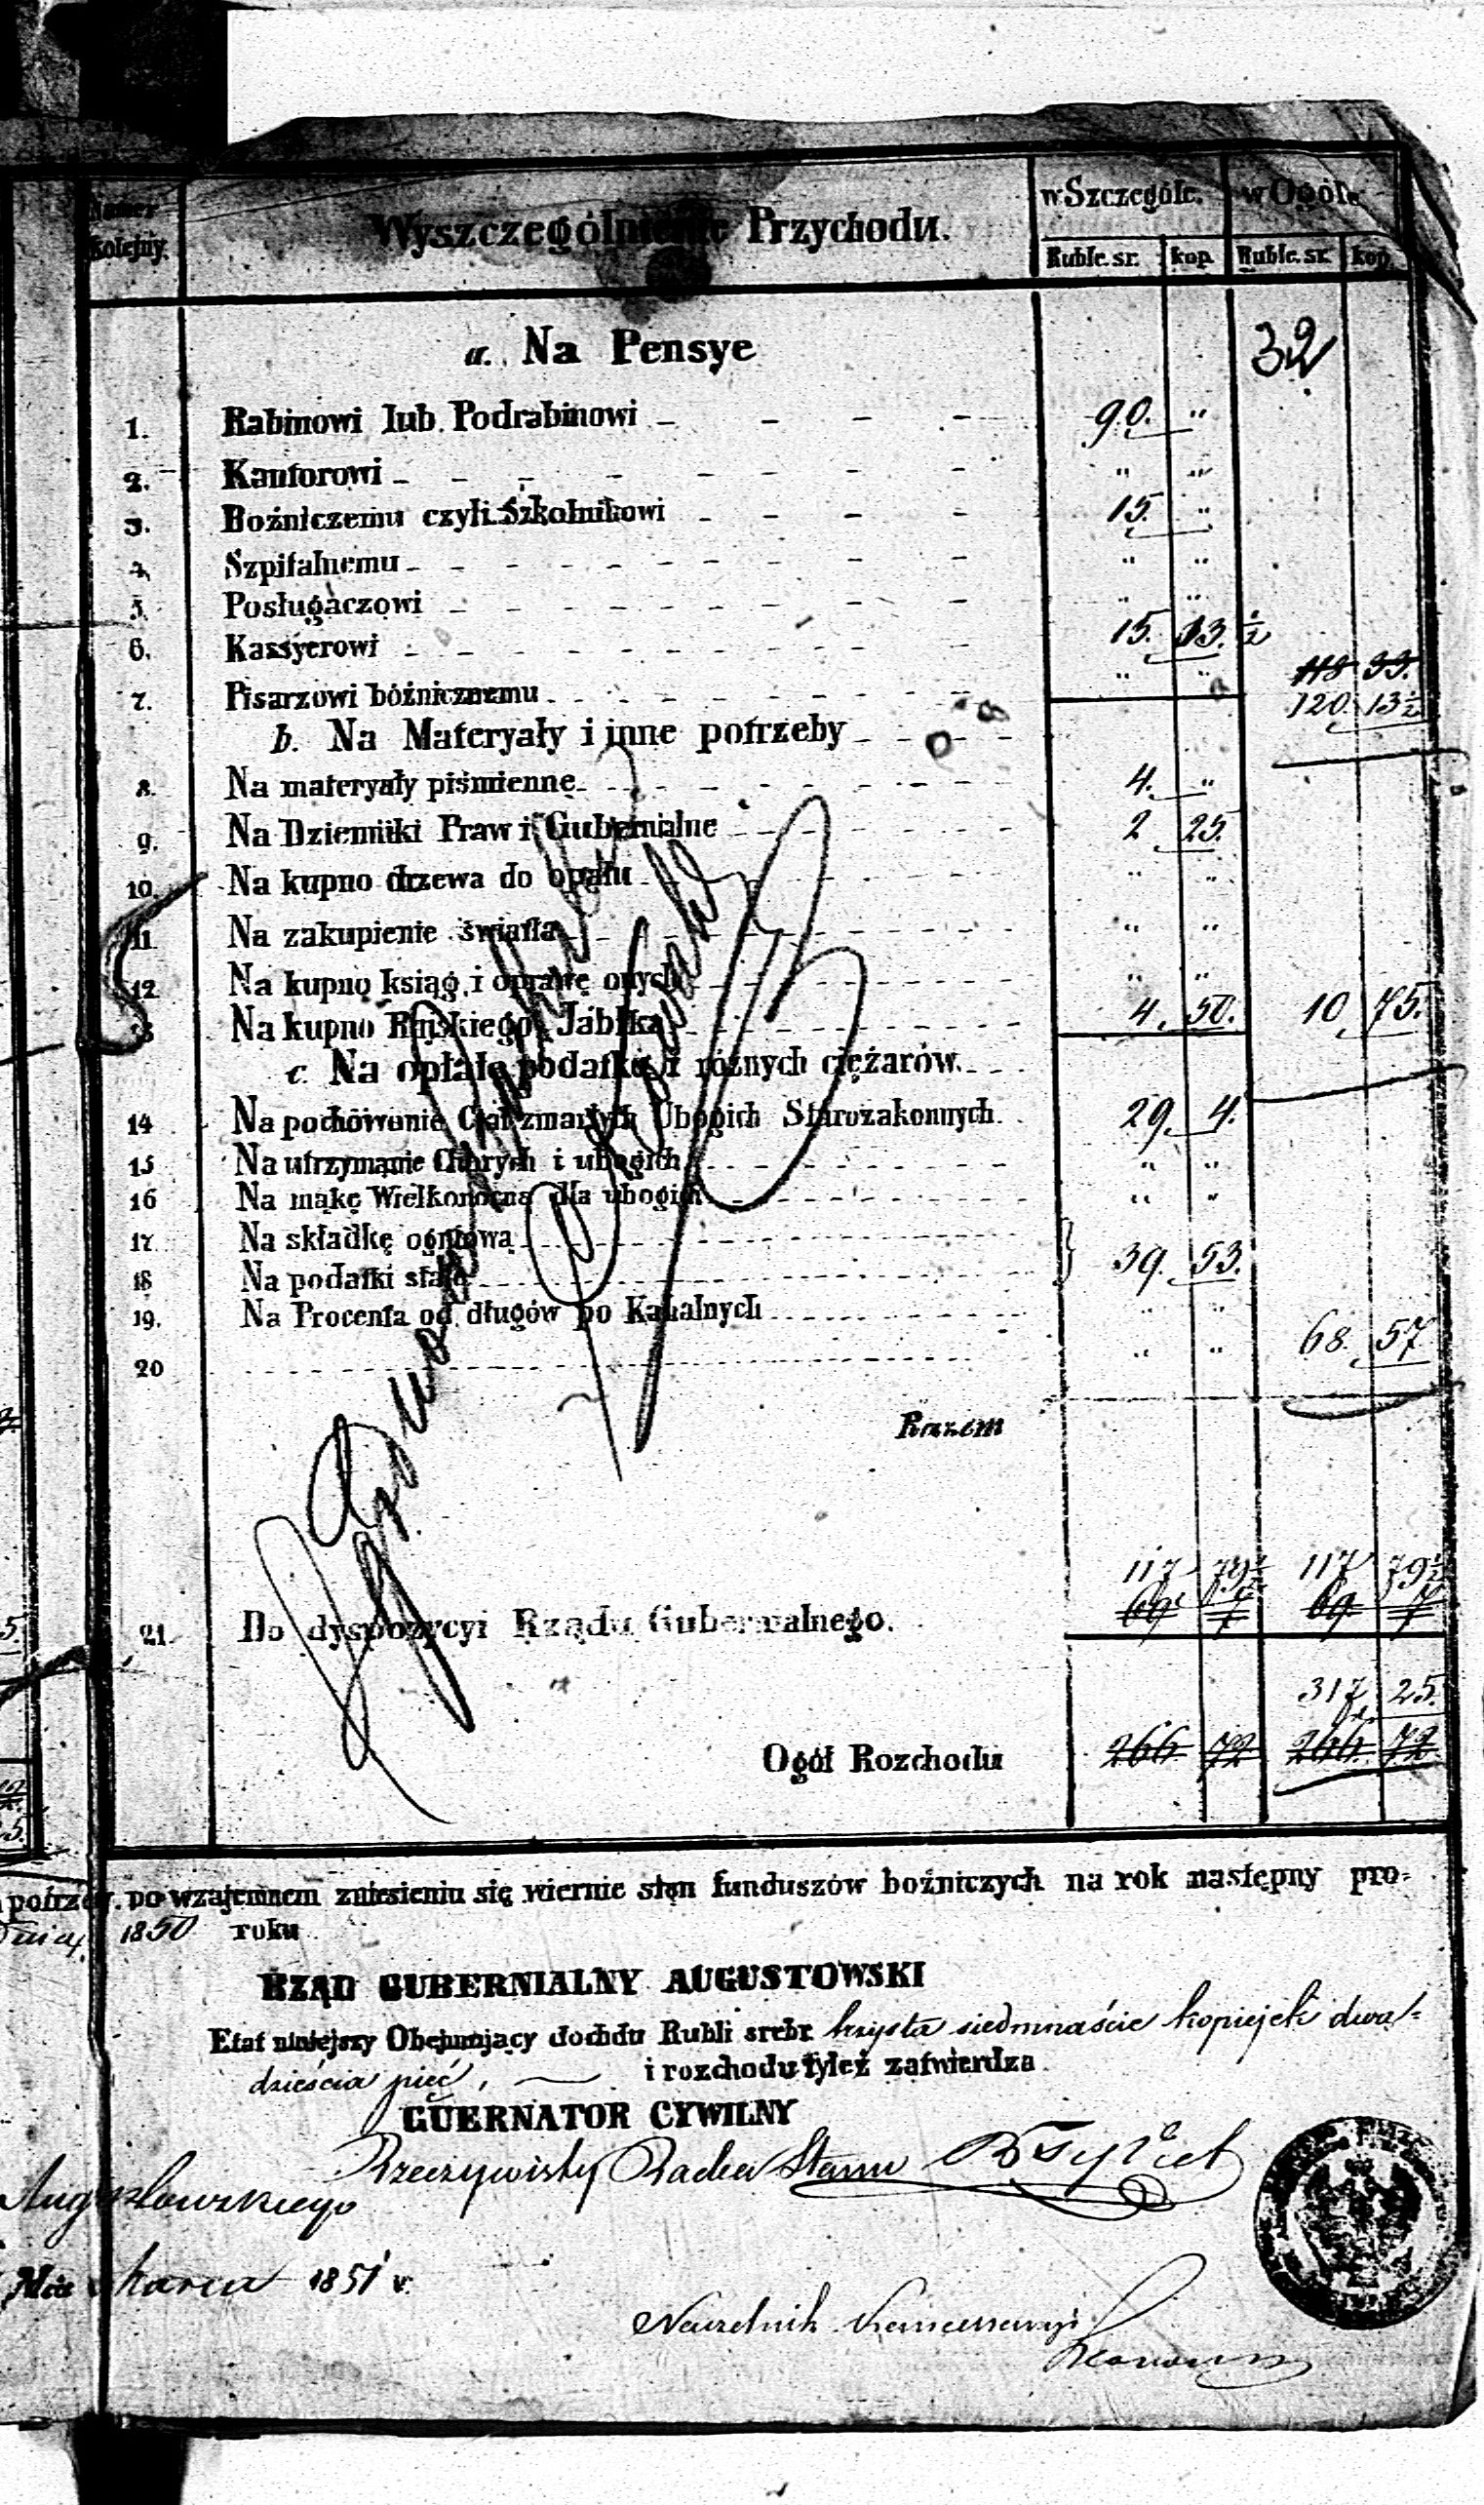 Numer Kolejny. Wyszczególnienie Przychodu. w Szczególe. w Ogóle
Ruble. sr. kop. Ruble. sr. kop.
a. Na Pensye 32
1. Rabinowi lub Podrabinowi - - - 90. "
2. Kantorowi - - - - - - - " "
3. Boźniczemu czyli Szkolnikowi - - - - 15. "
4. Szpitalnemu - - - - - - - - " "
5. Posługaczowi - - - - - - - - " "
6. Kassyerowi - - - - - - - - 15. 13. ½
118 33.
7. Pisarzowi bóźnicznemu - - - - - - - " " 120. 13½
b. Na Materyały i inne potrzeby - - - -
8. Na materyały piśmienne - - - - - - - 4. "
9. Na Dzienniki Praw i Gubernialne - - - - - - 2 25.
10. Na kupno drzewa do opału - - - - - - " "
11. Na zakupienie światła - - - - - - - " "
12. Na kupno ksiąg i oprawę onych - - - - - - " "
13 Na kupno Rajskiego Jabłka - - - - - - 4. 50. 10 75.
c. Na opłatę podatku i różnych ciężarów. - - -
14 Na pochowanie Ciał zmarłych Ubogich Starozakonnych 29. 4.
15 Na utrzymanie Chorych i ubogich - - - - - - " "
16 Na mąkę Wielkonocną dla ubogich - - - - - - " "
17. Na składkę ogniową - - - - - - -
18 Na podatki stałe - - - - - - - } 39. 53.
19. Na Procenta od długów po Kahalnych - - - - - " "
20 - - - - - - - - " " 68. 57
Razem
117 79½ 117 79½
21. Do dyspozycyi Rządu Gubernialnego. 69 7 69 7
317 25.
Ogół Rozchodu 266 72 266. 72
po wzajemnem zniesieniu się wiernie stan funduszów boźniczych na rok następny pro-
1850 roku
RZĄD GUBERNIALNY AUGUSTOWSKI
Etat niniejszy Obejmujący dochdu Rubli srebr. trzysta siedmnaście kopiejek dwa-
dzieścia pięć, — i rozchodu tyleż zatwierdza
GUERNATOR CYWILNY
Rzeczywisty Radca Stanu
Augustowskiego
Mca Marca 1851 r.
Naczelnik Kancellaryi